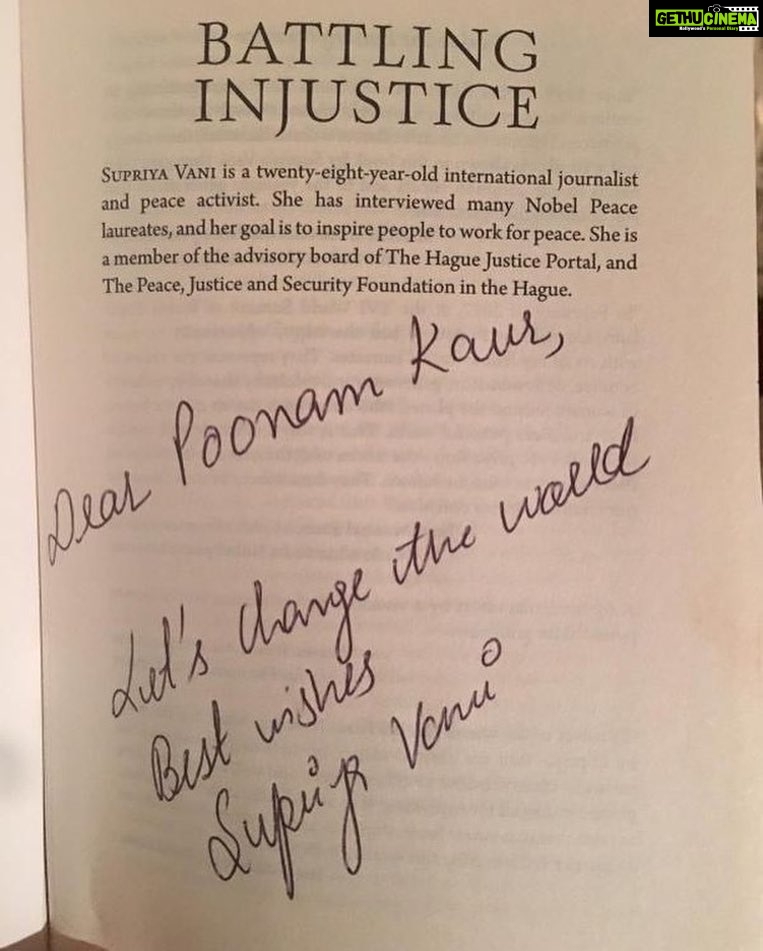 GETHU CINEMA
Kollywood's Personal Diary
BATTLING
INJUSTICE
SUPRIYA VANI is a twenty-eight-year-old international journalist
and peace activist. She has interviewed many Nobel Peace
laureates, and her goal is to inspire people to work for peace. She is
a member of the advisory board of The Hague Justice Portal, and
The Peace, Justice and Security Foundation in the Hague.
Dear Poonam Kaur,
Let's change the world
Best wishes
Supriya Vani